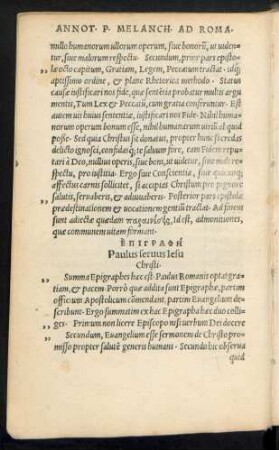 ANNOT. P. MELANCH. AD ROMA.
nullo humanorum illorum operum, siue honorũ, ut uiden-
tur, siue malorum respectu. Secundum, prior pars episto-
læ octo capitum, Gratiam, Legem, Peccatum tractat. idq̃
aptissimo ordine, & plane Rhetorica methodo. Status
causæ iustificari nos fide, quæ sentẽtia probatur multis argu
mentis, Tum Lex & Peccatũ, cum gratia conferuntur. Est
autem uis huius sententiæ, iustificari nos Fide. Nihil huma-
norum operum bonum esse, nihil humanarum uirilũ at quid
posse. Sed quia Christus se donauit, ac propter hunc sceri das
delicto ignosci, confidasq́; te saluum fore, eam Fidem repu-
tari à Deo, nullius operis, siue boni, ut uidetur, siue mali re-
spectu, pro iustitia. Ergo siue Conscientia, siue quicunq;
affectus carnis sollicitet, si accipias Christum pro pignore
salutis, seruaberis, & adiuuaberis. Posterior pars epistolæ
prædestinationem & uocationem gentium tractat. Ad finem
sunt adiectæ quædam παραινέσεις, id est, admonitiones,
quæ communem uitam formant.
ΕΠΙΓΡΑΦΗ
Paulus seruus Iesu
Christi.
Summa Epigraphes hæc est. Paulus Romanis optat gra-
tiam, & pacem. Porrò quæ addita sunt Epigraphæ, partim
officium Apostolicum cõmendant, partim Euangelium de-
scribunt. Ergo summatim ex hac Epigrapha hæc duo colli-
ges. Primum non licere Episcopo nisi uerbum Dei docere
Secundum, Euangelium esse sermonem de Christo pro-
misso propter salutẽ generis humani. Secundo hic obserua
quid